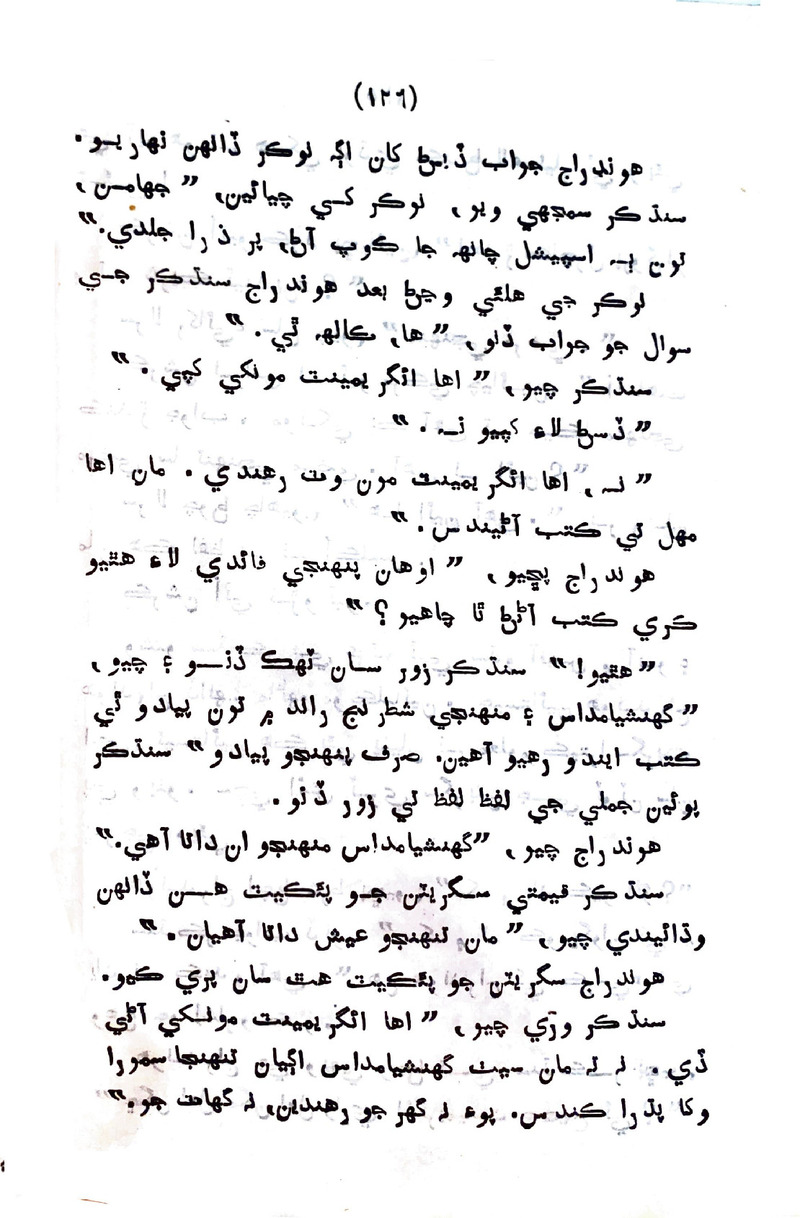 (١٢٦)
هوندراج جواب ڏيڻ کان اڳہ نوڪر ڏانهن نهاريو.
سنڌڪر سمجهي ويو، نوڪر کي چيائين، ”جهامن،
تون بہ اسپيشل چانهہ جا ڪوپ آڻ، پر ذرا جلدي.“
نوڪر جي هلڻي وڃڻ بعد هوندراج سنڌڪر جي
سوال جو جواب ڏنو، ”ها، ڪالهہ ٿي.“
سنڌڪر چيو، ”اها ائگريمينٽ مونکي کپي.“
”ڏسڻ لاءِ کپيو نہ.“
”نہ، اها ائگريمينٽ مون وٽ رهندي. مان اها
مهل تي ڪتب آڻيندس.“
هوندراج پڇيو، ”اوهان پنهنجي فائدي لاءِ هٿيو
ڪري ڪتب آڻڻ ٿا چاهيو؟“
”هٿيو!“ سنڌڪر زور سان ٽهڪ ڏنو ۽ چيو،
”گهنشيامداس ۽ منهنجي شطرنج راند ۾ تون پيادو ٿي
ڪتب ايندو رهيو آهين. صرف پنهنجو پيادو“ سنڌڪر
پوئين جملي جي لفظ لفظ تي زور ڏنو.
هوندراج چيو، ”گهنشيامداس منهنجو ان داتا آهي.“
سنڌڪر قيمتي سگريٽن جو پئڪيٽ هن ڏانهن
وڌائيندي چيو، ”مان تنهنجو عيش داتا آهيان.“
هوندراج سگريٽن جو پئڪيٽ هٿ سان پري ڪيو.
سنڌڪر وري چيو، ”اها ائگريمينٽ مونکي آڻي
ڏي. نہ تہ مان سيٺ گهنشيامداس اڳيان تنهنجا سمورا
وکا پڌرا ڪندس. پوءِ نہ گهر جو رهندين، نہ گهاٽ جو.“